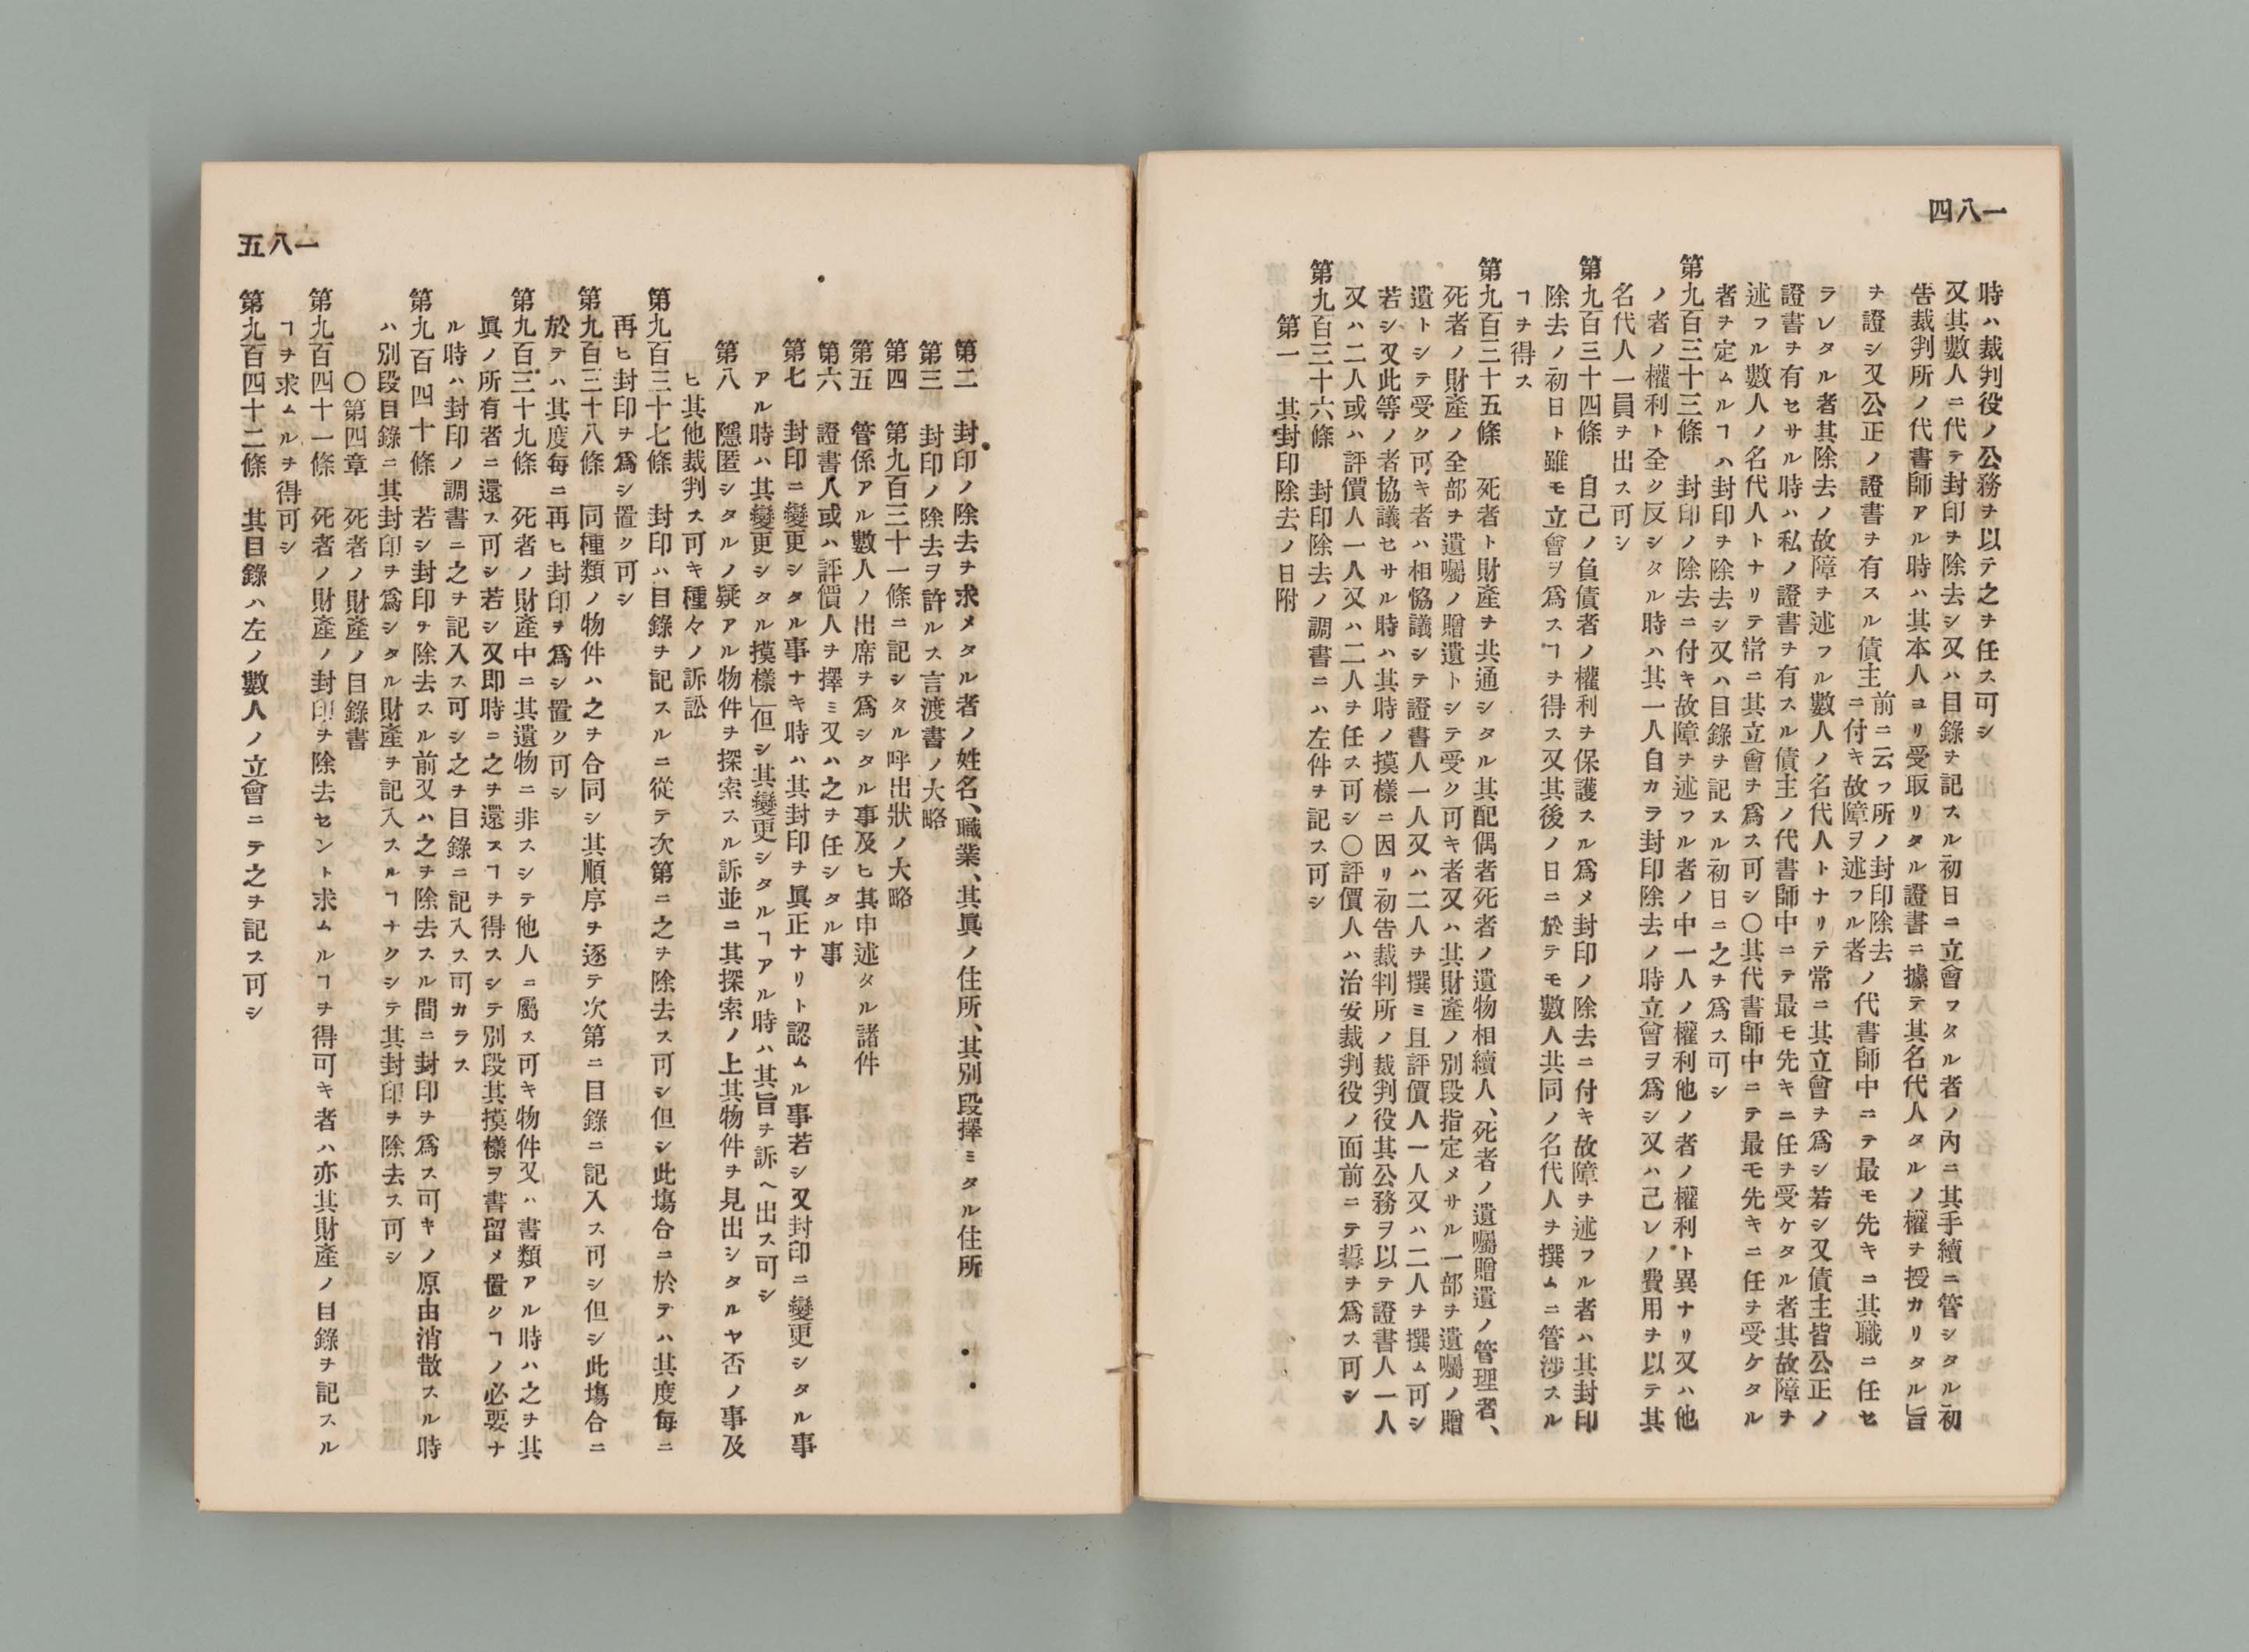 一八四
時ハ裁判役ノ公務ヲ以テ之ヲ任ス可シ
又其數人ニ代テ封印ヲ除去シ又ハ目錄ヲ記スル初日ニ立會フタル者ノ內ニ其手續ニ管シタル初
告裁判所ノ代書師アル時ハ其本人ヨリ受取リタル證書ニ據テ其名代人タルノ權ヲ授カリタル旨
ヲ證シ又公正ノ證書ヲ有スル債主前ニ云フ所ノ封印除去ニ付キ故障ヲ述フル者ノ代書師中ニテ最モ先キニ其職ニ任セ
ラレタル者其除去ノ故障ヲ述フル數人ノ名代人トナリテ常ニ其立會ヲ爲シ若シ又債主皆公正ノ
證書ヲ有セサル時ハ私ノ證書ヲ有スル債主ノ代書師中ニテ最モ先キニ任ヲ受ケタル者其故障ヲ
述フル數人ノ名代人トナリテ常ニ其立會ヲ爲ス可シ〇其代書師中ニテ最モ先キニ任ヲ受ケタル
者ヲ定ムルヿハ封印ヲ除去シ又ハ目錄ヲ記スル初日ニ之ヲ爲ス可シ
第九百三十三條　封印ノ除去ニ付キ故障ヲ述フル者ノ中一人ノ權利他ノ者ノ權利ト異ナリ又ハ他
ノ者ノ權利ト全ク反シタル時ハ其一人自カラ封印除去ノ時立會ヲ爲シ又ハ己レノ費用ヲ以テ其
名代人一員ヲ出ス可シ
第九百三十四條　自己ノ負債者ノ權利ヲ保護スル爲メ封印ノ除去ニ付キ故障ヲ述フル者ハ其封印
除去ノ初日ト雖モ立會ヲ爲スヿヲ得ス又其後ノ日ニ於テモ數人共同ノ名代人ヲ撰ムニ管涉スル
ヿヲ得ス
第九百三十五條　死者ト財產ヲ共通シタル其配偶者死者ノ遺物相續人、死者ノ遺囑贈遺ノ管理者、
死者ノ財產ノ全部ヲ遺囑ノ贈遺トシテ受ク可キ者又ハ其財產ノ別段指定メサル一部ヲ遺囑ノ贈
遺トシテ受ク可キ者ハ相恊議シテ證書人一人又ハ二人ヲ撰ミ且評價人一人又ハ二人ヲ撰ム可シ
若シ又此等ノ者協議セサル時ハ其時ノ摸樣ニ因リ初告裁判所ノ裁判役其公務ヲ以テ證書人一人
又ハ二人或ハ評價人一人又ハ二人ヲ任ス可シ〇評價人ハ治安裁判役ノ面前ニテ誓ヲ爲ス可シ
第九百三十六條　封印除去ノ調書ニハ左件ヲ記ス可シ
第一　其封印除去ノ日附
一八五
第二　封印ノ除去ヲ求メタル者ノ姓名、職業、其眞ノ住所、其別段擇ミタル住所
第三　封印ノ除去ヲ許ルス言渡書ノ大略
第四　第九百三十一條ニ記シタル呼出狀ノ大略
第五　管係アル數人ノ出席ヲ爲シタル事及ヒ其申述タル諸件
第六　證書人或ハ評價人ヲ擇ミ又ハ之ヲ任シタル事
第七　封印ニ變更シタル事ナキ時ハ其封印ヲ眞正ナリト認ムル事若シ又封印ニ變更シタル事
アル時ハ其變更シタル摸樣」但シ其變更シタルヿアル時ハ其旨ヲ訴ヘ出ス可シ
第八　隱匿シタルノ疑アル物件ヲ探索スル訴並ニ其探索ノ上其物件ヲ見出シタルヤ否ノ事及
ヒ其他裁判ス可キ種々ノ訴訟
第九百三十七條　封印ハ目錄ヲ記スルニ從テ次第ニ之ヲ除去ス可シ但シ此塲合ニ於テハ其度每ニ
再ヒ封印ヲ爲シ置ク可シ
第九百三十八條　同種類ノ物件ハ之ヲ合同シ其順序ヲ逐テ次第ニ目錄ニ記入ス可シ但シ此塲合ニ
於テハ其度每ニ再ヒ封印ヲ爲シ置ク可シ
第九百三十九條　死者ノ財產中ニ其遺物ニ非スシテ他人ニ屬ス可キ物件又ハ書類アル時ハ之ヲ其
眞ノ所有者ニ還ス可シ若シ又即時ニ之ヲ還スヿヲ得スシテ別段其摸樣ヲ書留メ置クヿノ必要ナ
ル時ハ封印ノ調書ニ之ヲ記入ス可シ之ヲ目錄ニ記入ス可カラス
第九百四十條　若シ封印ヲ除去スル前又ハ之ヲ除去スル間ニ封印ヲ爲ス可キノ原由消散スル時
ハ別段目錄ニ其封印ヲ爲シタル財產ヲ記入スルヿナクシテ其封印ヲ除去ス可シ
〇第四章　死者ノ財產ノ目錄書
第九百四十一條　死者ノ財產ノ封印ヲ除去セント求ムルヿヲ得可キ者ハ亦其財產ノ目錄ヲ記スル
ヿヲ求ムルヲ得可シ
第九百四十二條　其目錄ハ左ノ數人ノ立會ニテ之ヲ記ス可シ